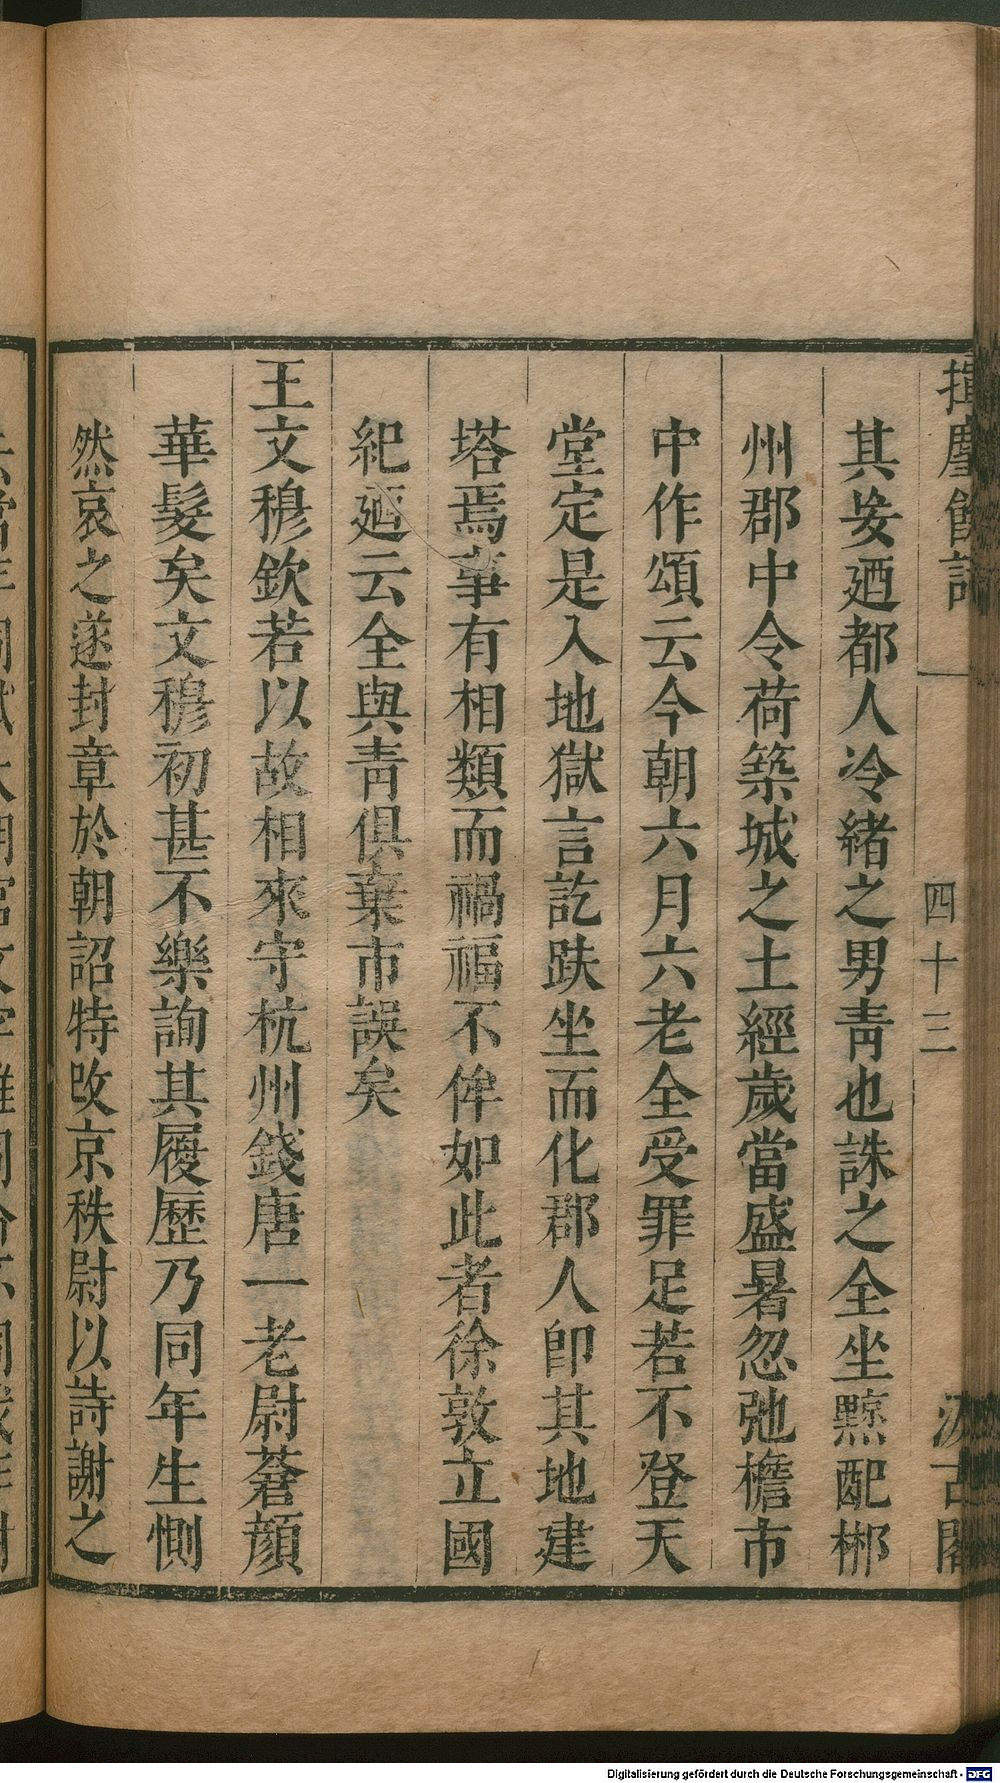 揮麈餘話
四十三
汲古閣
其妄廼都人冷緒之男青也誅之全坐黥配郴
州郡中令荷築城之土經歲當盛暑忽弛檐市
中作頌云今朝六月六老全受罪足若不登天
堂定是入地獄言訖趺坐而化郡人卽其地建
塔焉事有相類而禍福不侔如此者徐敦立國
紀廼云全與青俱棄市誤矣
王文穆欽若以故相來守杭州錢唐一老尉蒼顔
華髮矣文穆初甚不樂詢其履歷乃同年生惻
然哀之遂封章於朝詔特改京秩尉以詩謝之
Digitalisierung gefördert durch die Deutsche Forschungsgemeinschaft - DFG